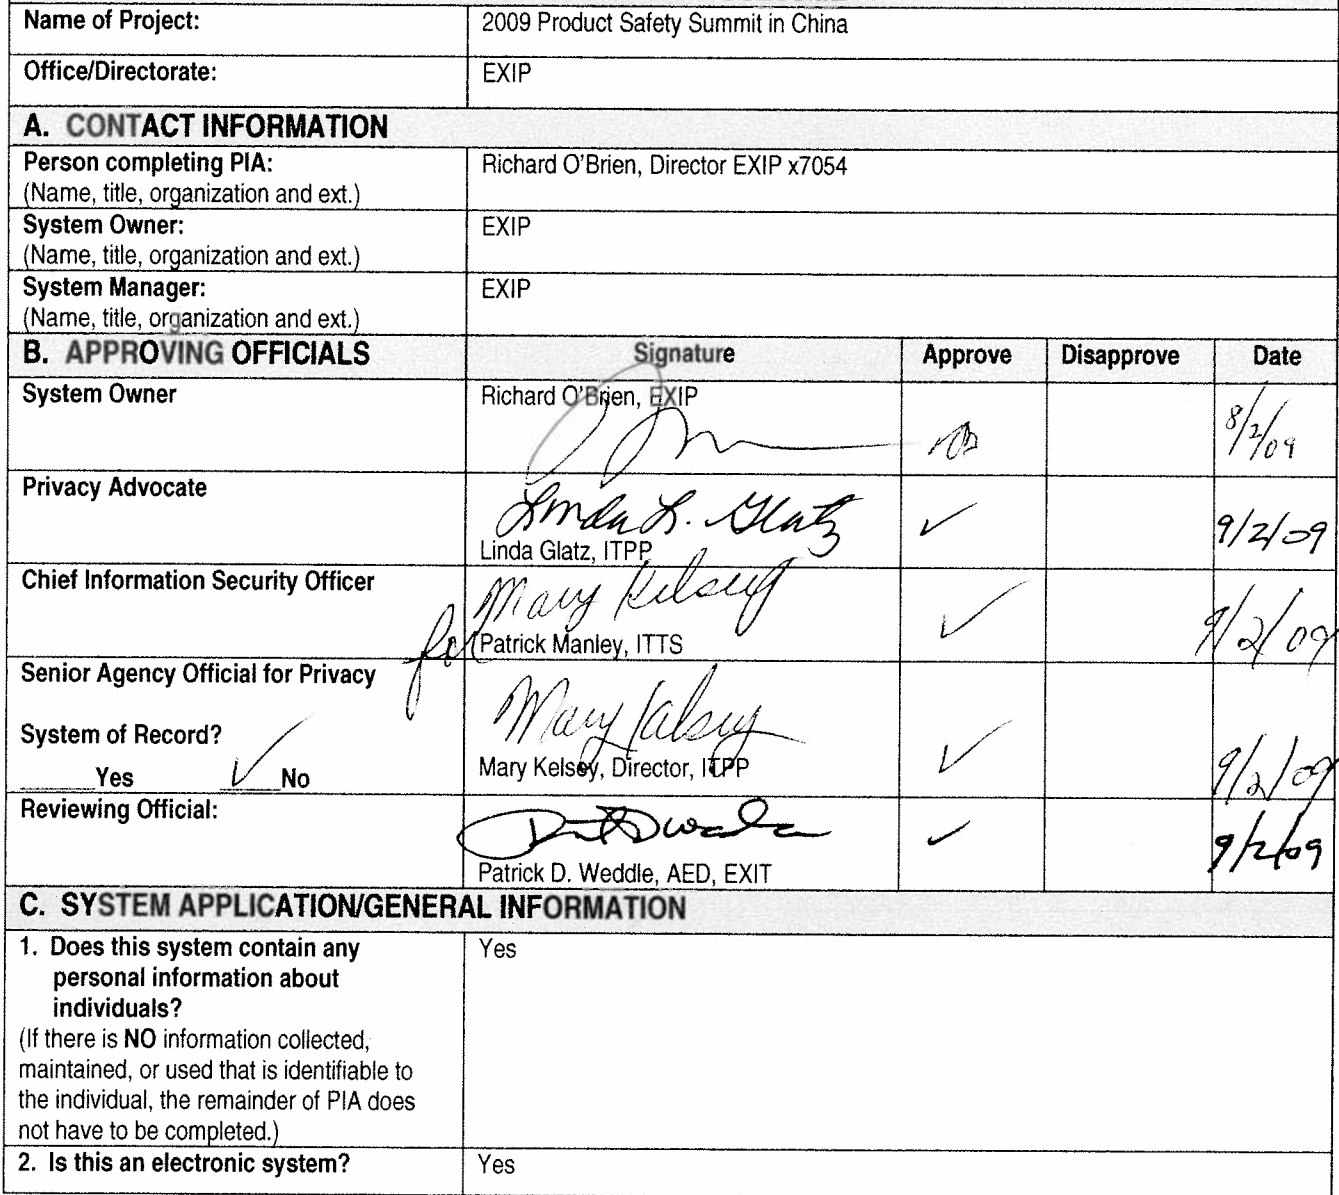 Name of Project: 2009 Product Safety Summit in China
Office/Directorate: EXIP
A. CONTACT INFORMATION
Person completing PIA: Richard O'Brien, Director EXIP x7054
(Name, title, organization and ext.)
System Owner: EXIP
(Name, title, organization and ext.)
System Manager: EXIP
(Name, title, organization and ext.)
B. APPROVING OFFICIALS Signature Approve Disapprove Date
System Owner Richard O'Brien, EXIP
8/2/09
Privacy Advocate Linda L. Glatz ✓ 9/2/09
Linda Glatz, ITPP
Chief Information Security Officer Mary Kelsey ✓ 9/2/09
for Patrick Manley, ITTS
Senior Agency Official for Privacy
Mary Kelsey ✓ 9/2/09
System of Record?
_____Yes __✓__No Mary Kelsey, Director, ITPP
Reviewing Official: ✓ 9/2/09
Patrick D. Weddle, AED, EXIT
C. SYSTEM APPLICATION/GENERAL INFORMATION
1. Does this system contain any Yes
personal information about
individuals?
(If there is NO information collected,
maintained, or used that is identifiable to
the individual, the remainder of PIA does
not have to be completed.)
2. Is this an electronic system? Yes